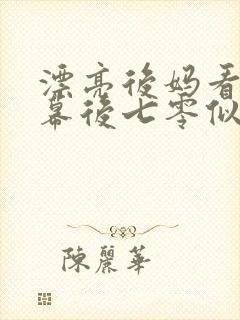 漂亮後妈看
幕後七零似
陳麗華